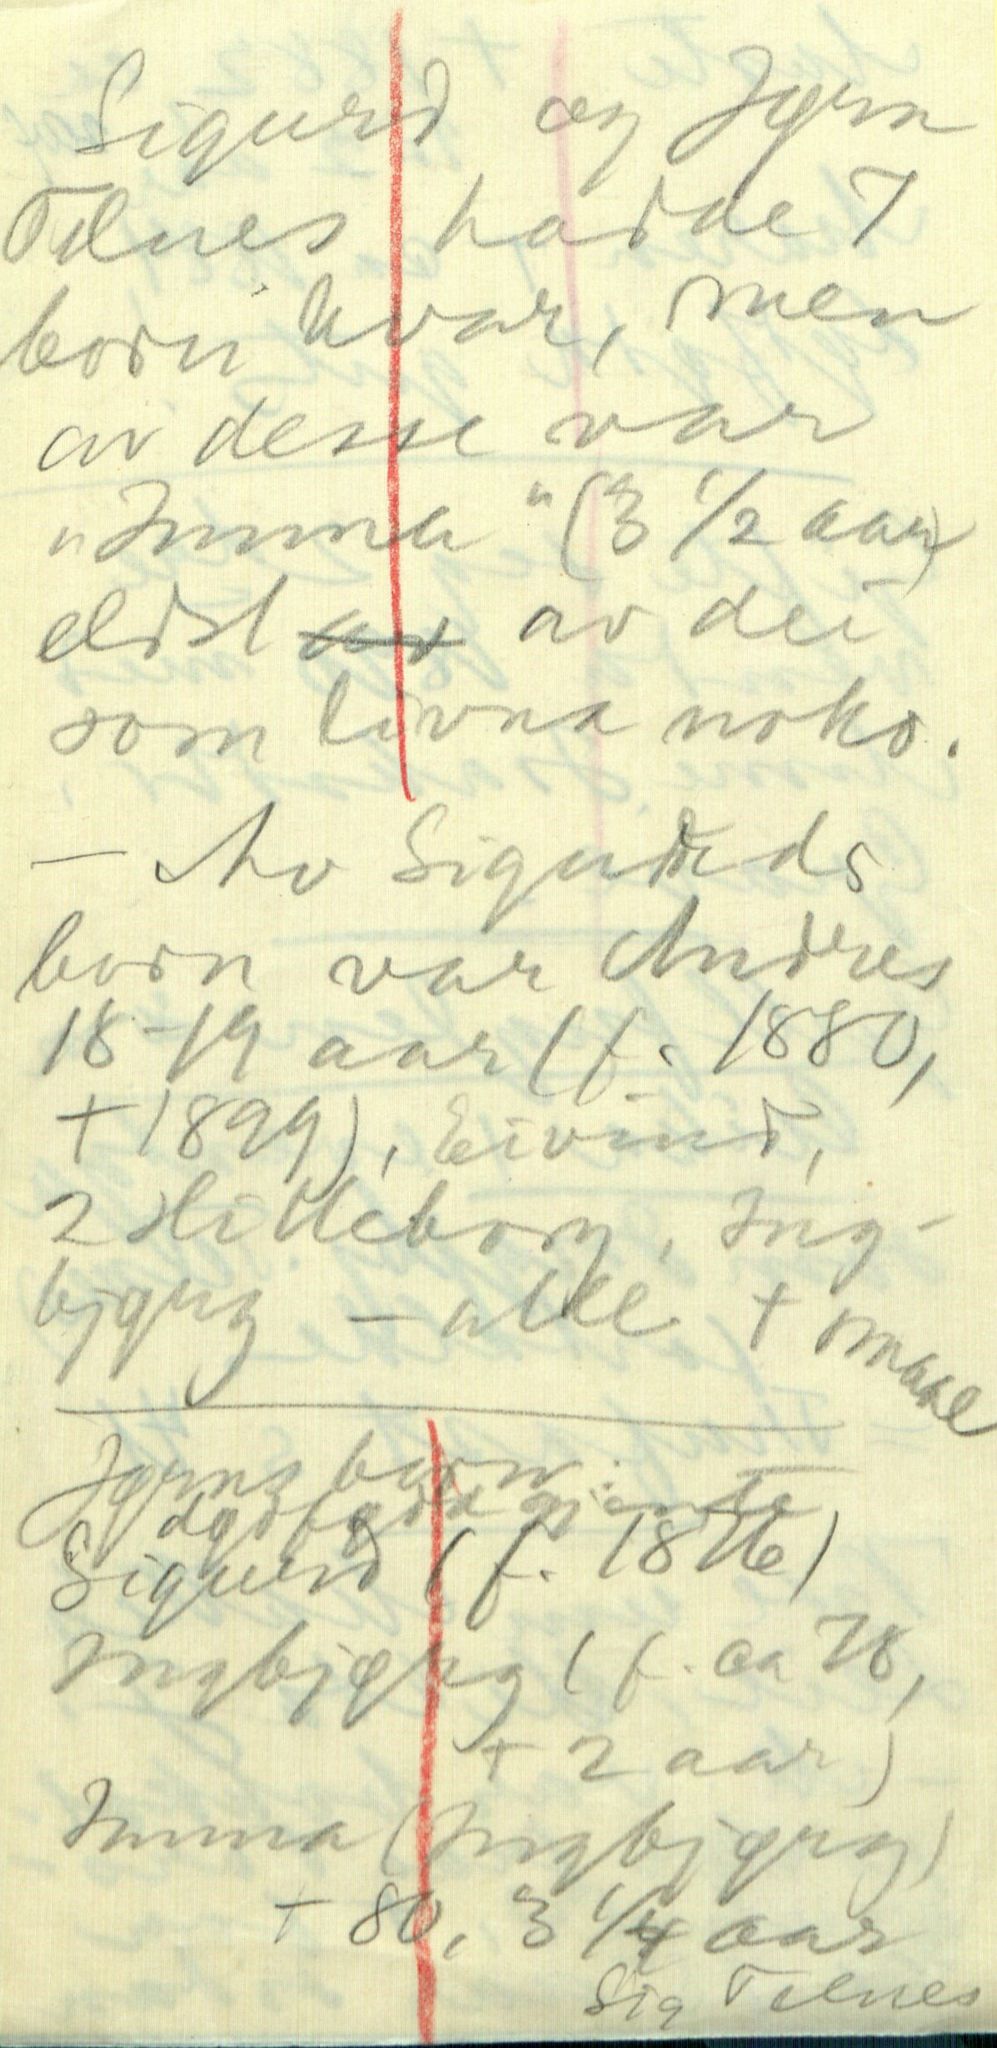 Sigurd og Jørn
Tilnes hadde 7
born kvar, men
av desse var
"Imma" (3 1/2 aar)
eldst av av dei
som livna noko.
– Av Sigurds
born var Andres
18-19 aar (f. 1880,
+ 1899), Eivind,
2 Hitleborg, Ing-
bjørg – alle + smaae
Jørns born:
dødfødd gjente
Sigurd (f. 1876)
Ingbjørg (f. ca 78,
+ 2 aar)
Imma (Ingbjørg)
+ 80, 3 1/4 aar
Sig Tilnes